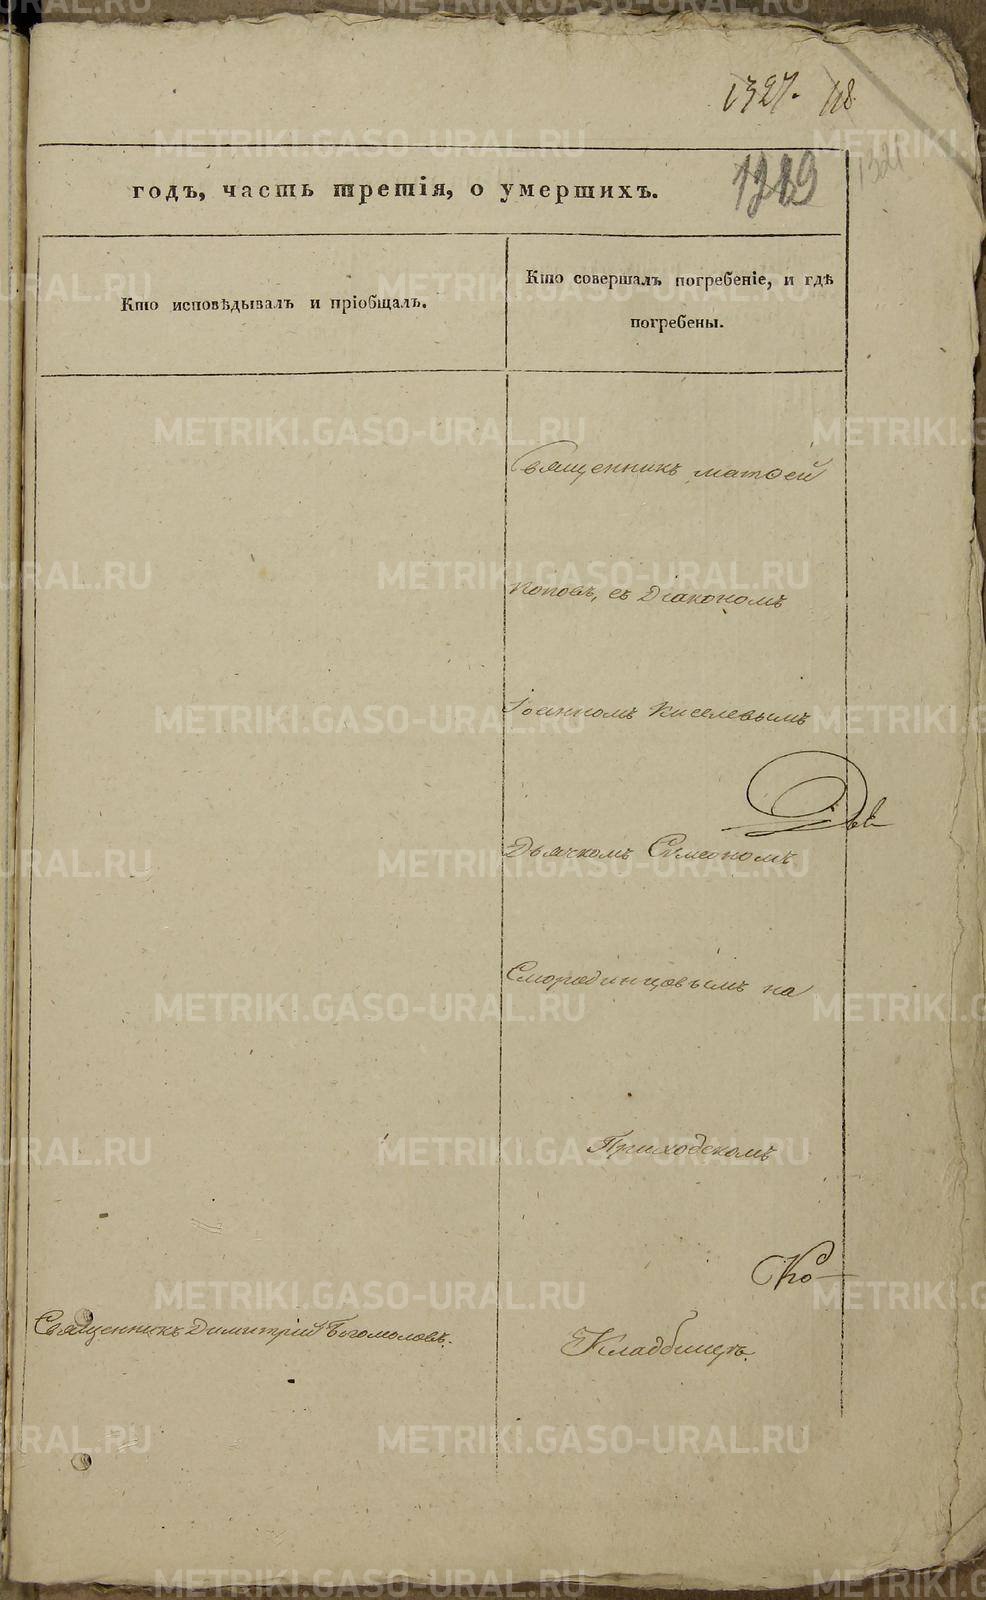 1327. 118
1319
годъ, часть третія, о умершихъ.
Кто исповѣдывалъ и пріобщалъ.
Кто совершалъ погребеніе, и гдѣ
погребены.
Священникъ матѳей
поповъ, съ Діакономъ
Іоанномъ Киселевымъ
Дьячкомъ Сѵмеономъ
Смородинцовымъ на
Приходскомъ
Ко
Священникъ Димитрій Богомоловъ.
Кладбищѣ.
METRIKI.GASO-URAL.RU